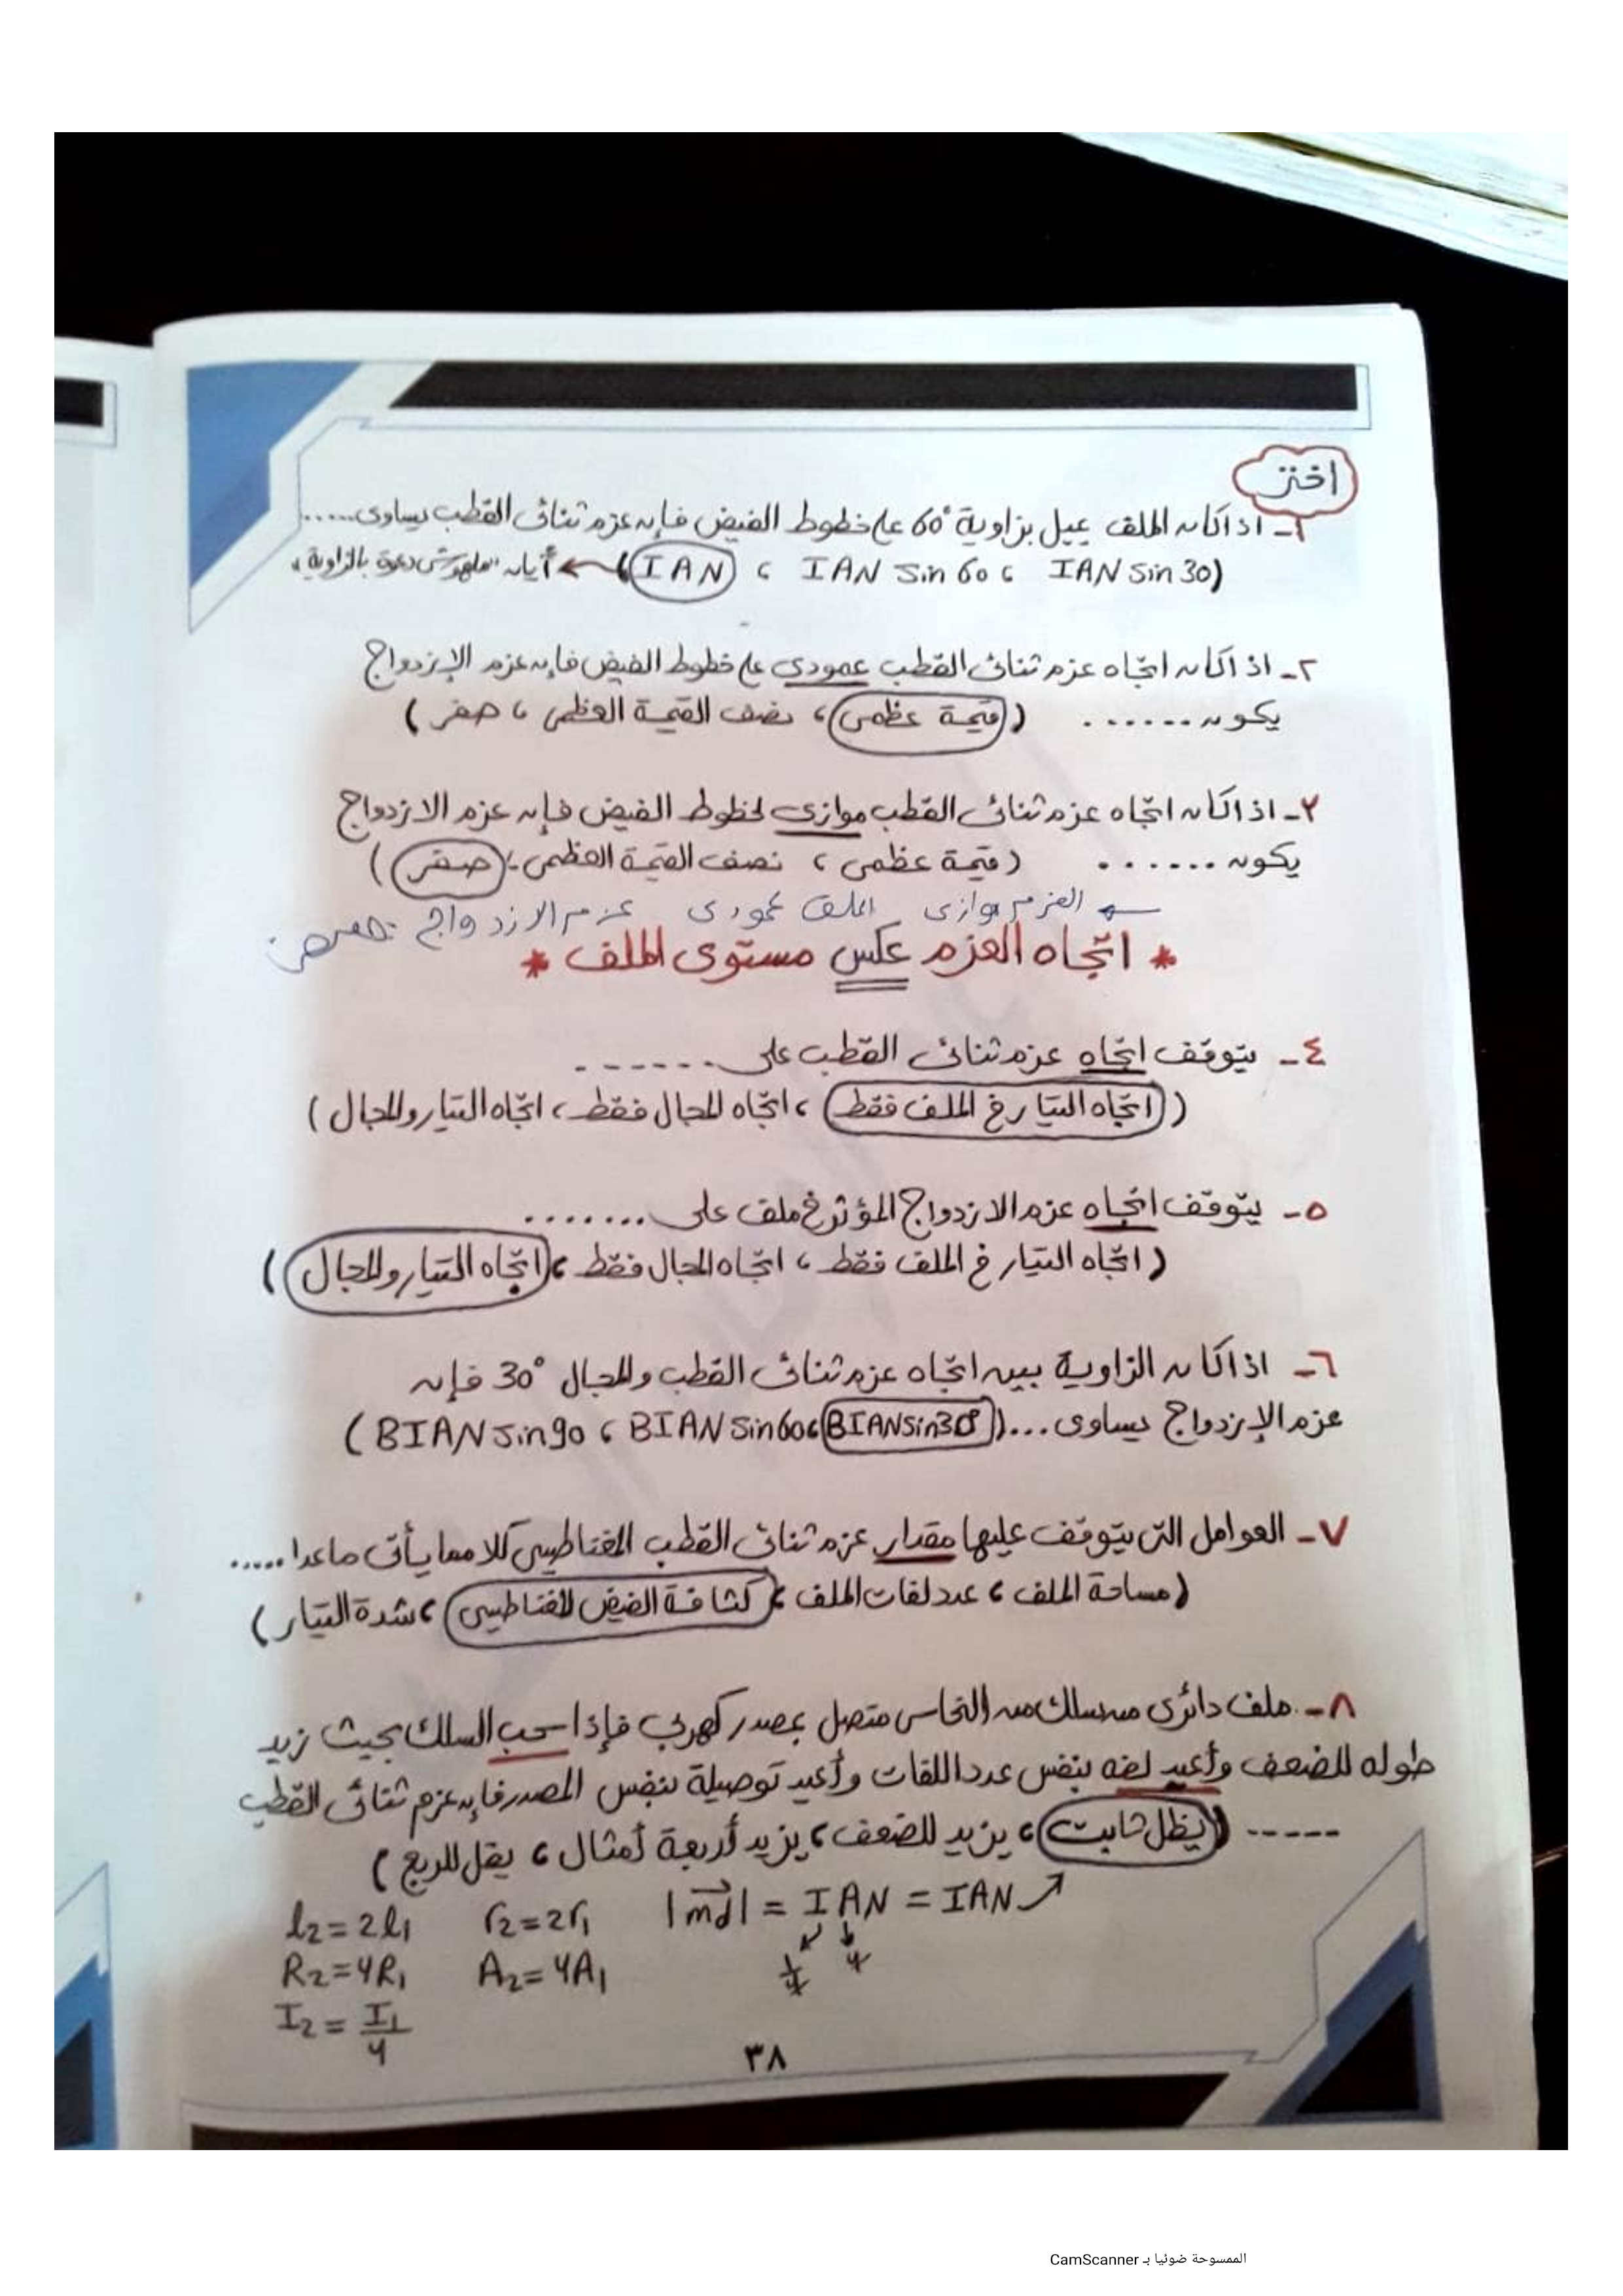 اختر
١- اذا كان الملف يميل بزاوية 60° على خطوط الفيض فإن عزم ثنائى القطب يساوى.....
(IAN sin 30 ، IAN sin 60 ، IAN) ← أيان ملهوش دعوة بالزاوية
٢- اذا كان اتجاه عزم ثنائى القطب عمودى على خطوط الفيض فإن عزم الإزدواج
يكون ...... (قيمة عظمى ، نصف القيمة العظمى ، صفر)
٣- اذا كان اتجاه عزم ثنائى القطب موازى لخطوط الفيض فإن عزم الازدواج
يكون ...... (قيمة عظمى ، نصف القيمة العظمى ، صفر)
← العزم موازى الملف عمودى عزم الازدواج
* اتجاه العزم عكس مستوى الملف *
٤- يتوقف اتجاه عزم ثنائى القطب على ......
(اتجاه التيار فى الملف فقط ، اتجاه المجال فقط ، اتجاه التيار والمجال)
٥- يتوقف اتجاه عزم الازدواج المؤثر فى ملف على .......
(اتجاه التيار فى الملف فقط ، اتجاه المجال فقط ، اتجاه التيار والمجال)
٦- اذا كان الزاوية بين اتجاه عزم ثنائى القطب والمجال 30° فإن
عزم الإزدواج يساوى ...(BIAN sin30° ، BIAN sin60 ، BIAN sin90)
٧- العوامل التى يتوقف عليها مقدار عزم ثنائى القطب المغناطيسى كلا مما يأتى ماعدا .....
(مساحة الملف ، عدد لفات الملف ، كثافة الفيض المغناطيسى ، شدة التيار)
٨- ملف دائرى من سلك من النحاس متصل بمصدر كهربى فإذا سحب السلك بحيث زيد
طوله للضعف وأعيد لفه بنفس عدد اللفات وأعيد توصيلة بنفس المصدر فإن عزم ثنائى القطب
----- (يظل ثابت ، يزيد للضعف ، يزيد أربعة أمثال ، يقل للربع)
l₂ = 2l₁ r₂ = 2r₁ |md| = IAN = IAN
R₂ = 4R₁ A₂ = 4A₁ 1/4 4
I₂ = I₁/4
٣٨
الممسوحة ضوئيا بـ CamScanner